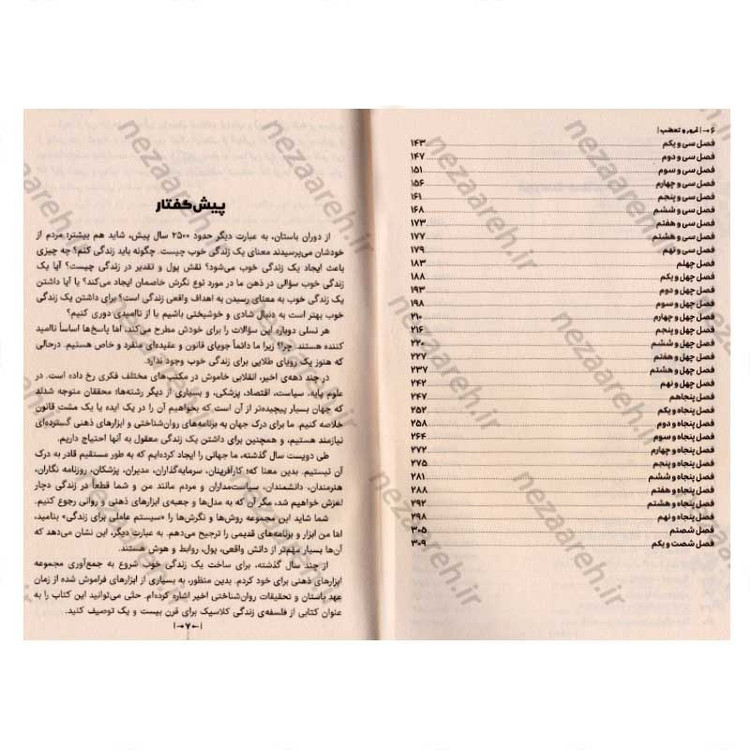 ۶ ⇥ | غرور و تعصب |
فصل سی و یکم ۱۴۳
فصل سی و دوم ۱۴۷
فصل سی و سوم ۱۵۱
فصل سی و چهارم ۱۵۶
فصل سی و پنجم ۱۶۱
فصل سی و ششم ۱۶۸
فصل سی و هفتم ۱۷۳
فصل سی و هشتم ۱۷۷
فصل سی و نهم ۱۷۹
فصل چهلم ۱۸۳
فصل چهل و یکم ۱۸۸
فصل چهل و دوم ۱۹۳
فصل چهل و سوم ۱۹۸
فصل چهل و چهارم ۲۱۰
فصل چهل و پنجم ۲۱۶
فصل چهل و ششم ۲۲۰
فصل چهل و هفتم ۲۲۷
فصل چهل و هشتم ۲۳۷
فصل چهل و نهم ۲۴۲
فصل پنجاهم ۲۴۷
فصل پنجاه و یکم ۲۵۲
فصل پنجاه و دوم ۲۵۸
فصل پنجاه و سوم ۲۶۴
فصل پنجاه و چهارم ۲۷۰
فصل پنجاه و پنجم ۲۷۵
فصل پنجاه و ششم ۲۸۱
فصل پنجاه و هفتم ۲۸۸
فصل پنجاه و هشتم ۲۹۲
فصل پنجاه و نهم ۲۹۸
فصل شصتم ۳۰۵
فصل شصت و یکم ۳۰۹
پیش‌گفتار
از دوران باستان، به عبارت دیگر حدود ۲۵۰۰ سال پیش، شاید هم بیشتر؛ مردم از
خودشان می‌پرسیدند معنای یک زندگی خوب چیست. چگونه باید زندگی کنم؟ چه چیزی
باعث ایجاد یک زندگی خوب می‌شود؟ نقش پول و تقدیر در زندگی چیست؟ آیا یک
زندگی خوب سؤالی در ذهن ما در مورد نوع نگرش خاصمان ایجاد می‌کند؟ یا آیا داشتن
یک زندگی خوب به معنای رسیدن به اهداف واقعی زندگی است؟ برای داشتن یک زندگی
خوب بهتر است به دنبال شادی و خوشبختی باشیم یا از ناامیدی دوری کنیم؟
هر نسلی دوباره این سؤالات را برای خودش مطرح می‌کند، اما پاسخ‌ها اساساً ناامید
کننده هستند. چرا؟ زیرا ما دائماً جویای قانون و عقیده‌ای منفرد و خاص هستیم. درحالی
که هنوز یک رویای طلایی برای زندگی خوب وجود ندارد.
در چند دهه‌ی اخیر، انقلابی خاموش در مکتب‌های مختلف فکری رخ داده است. در
علوم پایه، سیاست، اقتصاد، پزشکی، و بسیاری از دیگر رشته‌ها؛ محققان متوجه شدند
که جهان بسیار پیچیده‌تر از آن است که بخواهیم آن را در یک ایده یا یک مشت قانون
خلاصه کنیم. ما برای درک جهان به برنامه‌های روان‌شناختی و ابزارهای ذهنی گسترده‌ای
نیازمند هستیم، و همچنین برای داشتن یک زندگی معقول به آنها احتیاج داریم.
طی دویست سال گذشته، ما جهانی را ایجاد کرده‌ایم که به طور مستقیم قادر به درک
آن نیستیم. بدین معنا که؛ کارآفرینان، سرمایه‌گذاران، مدیران، پزشکان، روزنامه نگاران،
هنرمندان، دانشمندان، سیاست‌مداران و مردمی مانند من و شما قطعاً در زندگی دچار
لغزش خواهیم شد، مگر آن که به مدل‌ها و جعبه‌ی ابزارهای ذهنی و روانی رجوع کنیم.
شما شاید این مجموعه روش‌ها و نگرش‌ها را «سیستم عاملی برای زندگی» بنامید،
اما من ابزار و برنامه‌های قدیمی را ترجیح می‌دهم. به عبارت دیگر، این نشان می‌دهد که
آن‌ها بسیار مهم‌تر از دانش واقعی، پول، روابط و هوش هستند.
از چند سال گذشته، برای ساخت یک زندگی خوب شروع به جمع‌آوری مجموعه
ابزارهای ذهنی برای خود کردم. بدین منظور، به بسیاری از ابزارهای فراموش شده از زمان
عهد باستان و تحقیقات روان‌شناختی اخیر اشاره کرده‌ام. حتی می‌توانید این کتاب را به
عنوان کتابی از فلسفه‌ی زندگی کلاسیک برای قرن بیست و یک توصیف کنید.
|⇥۷⇤|
nezaareh.ir
nezaareh.ir
nezaareh.ir
nezaareh.ir
nezaareh.ir
nezaareh.ir
nezaareh.ir
nezaareh.ir
nezaareh.ir